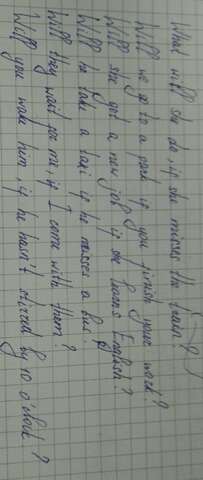 What will she do, if she misses the train?
Will we go to a park if you finish your work?
Will she get a new job, if she learns English?
Will he take a taxi if he misses a bus?
Will they wait for me, if I come with them?
Will you wake him, if he hasn't stirred by 10 o'clock?